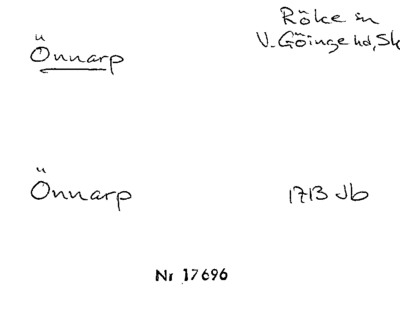 Önnarp
Röke sn
V. Göinge hd, Sk
Önnarp
1713 Jb
Nr 17696